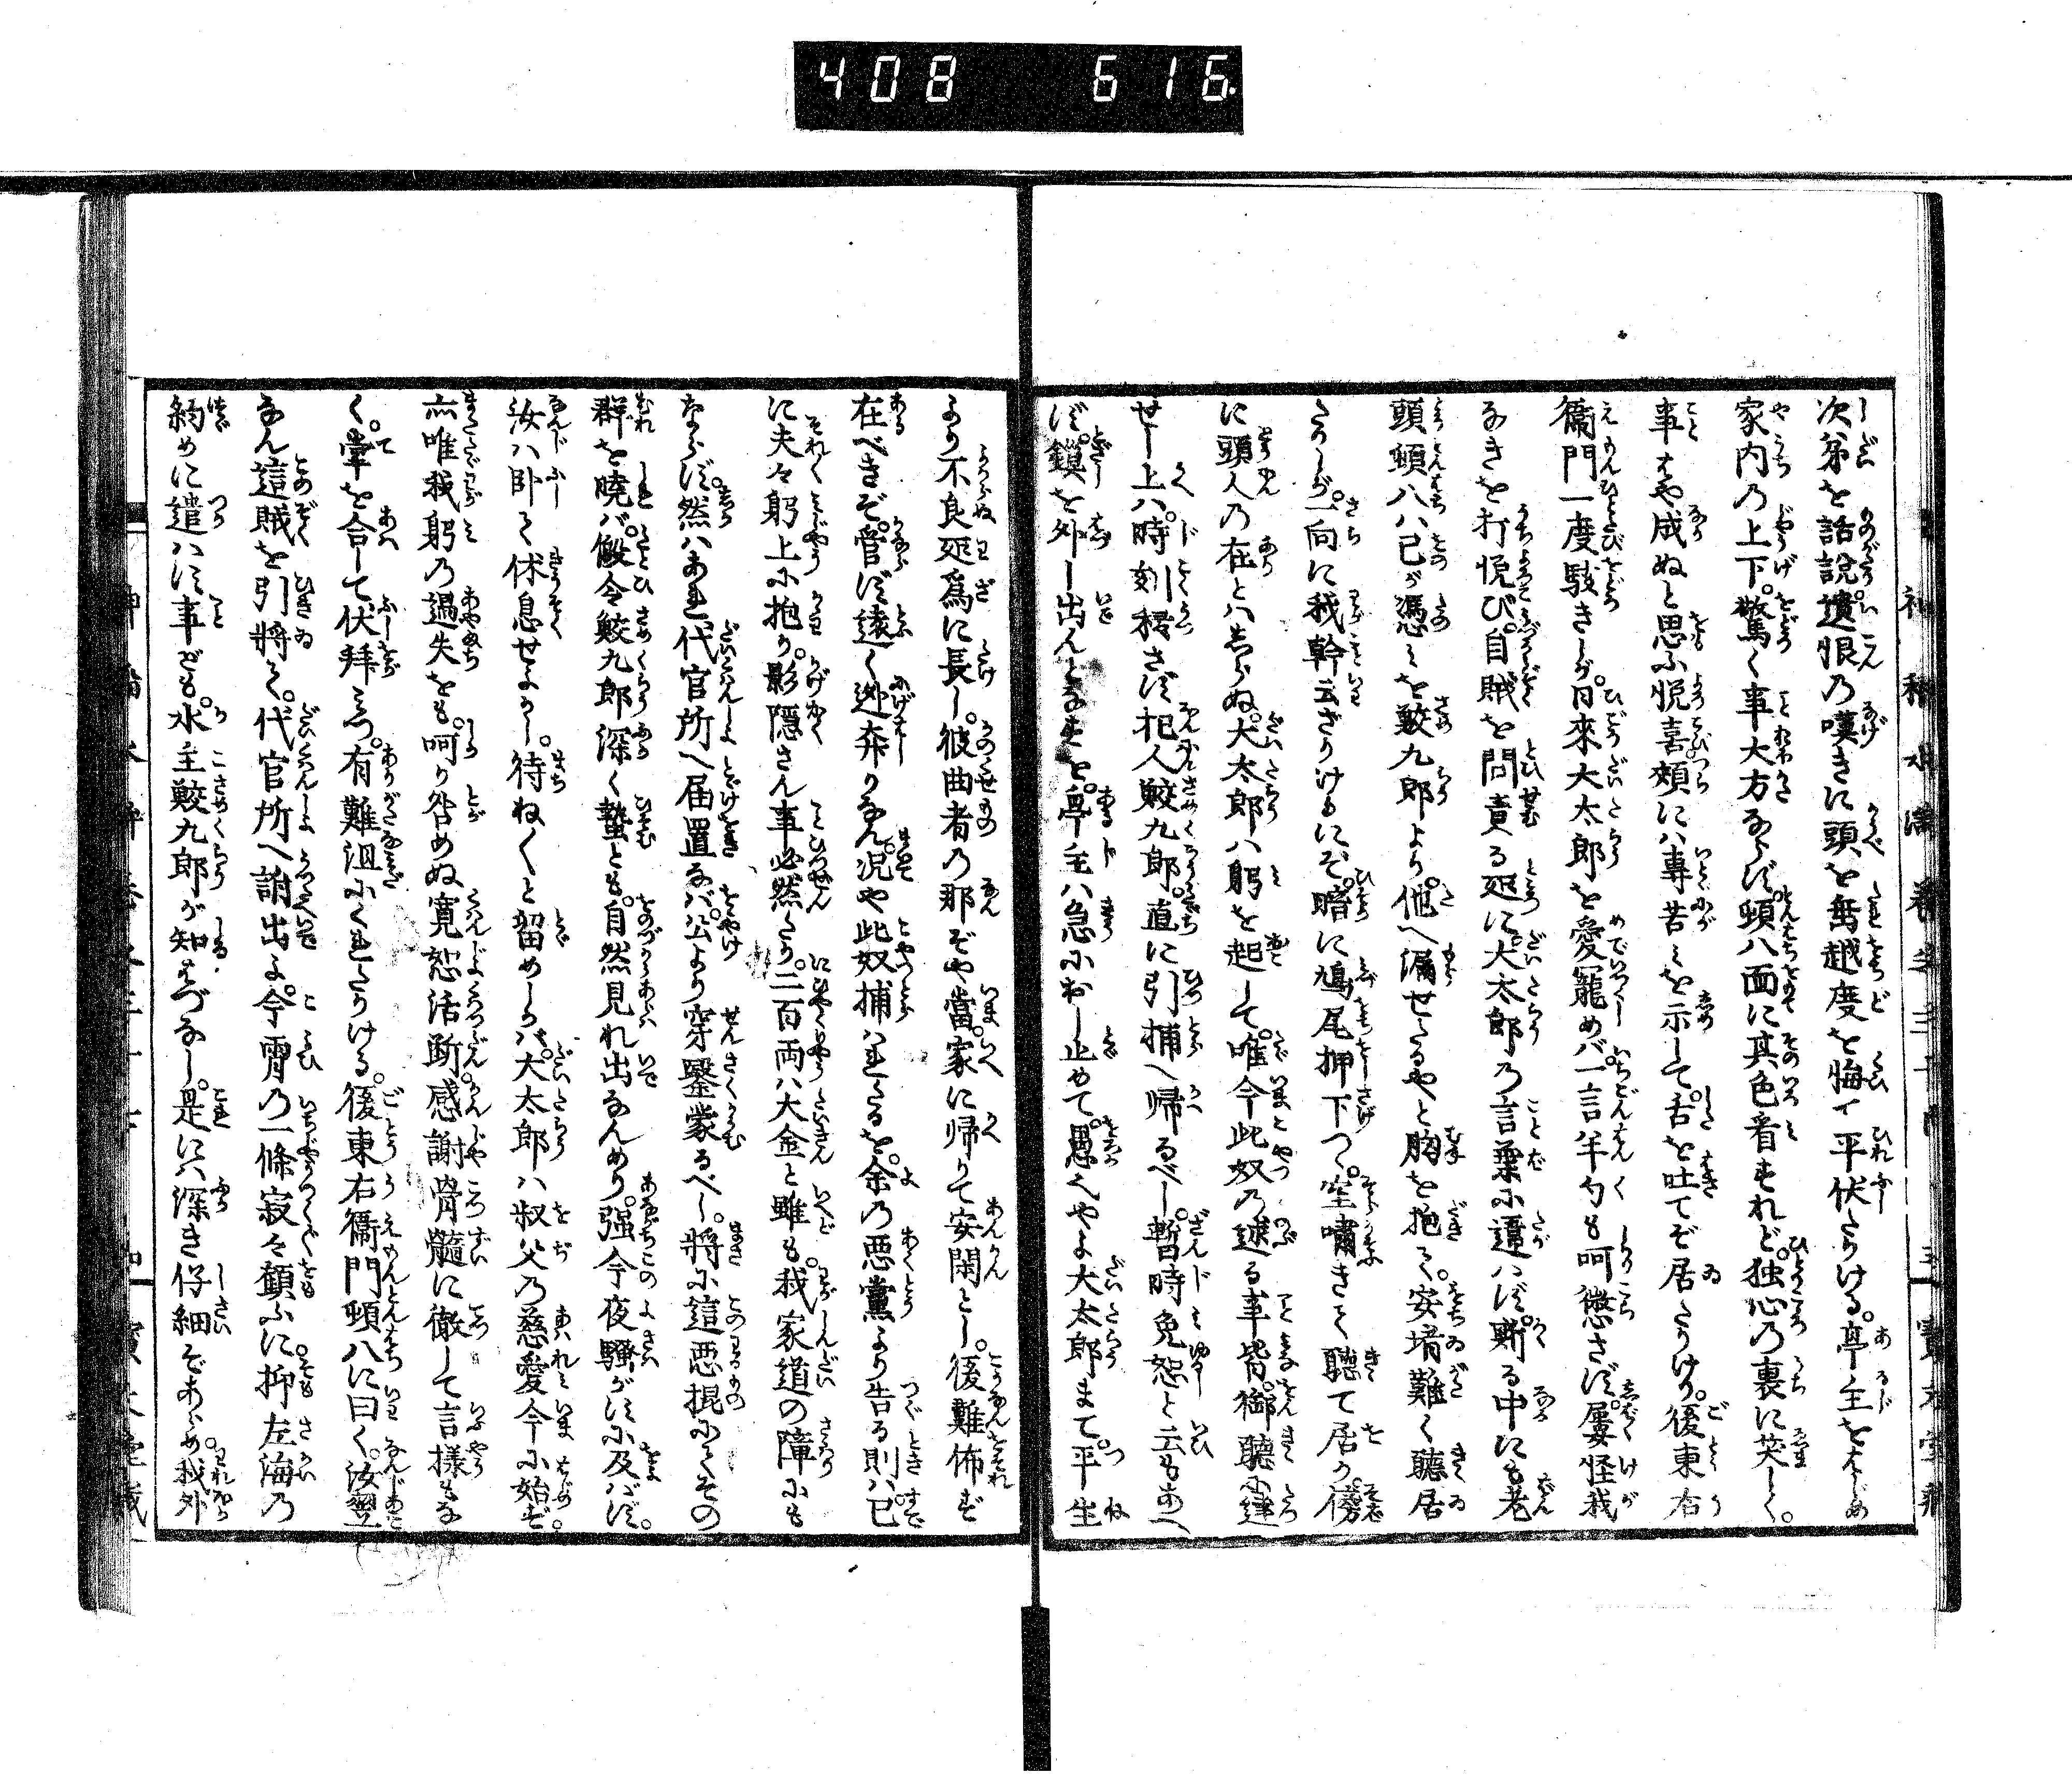 408 616.
次第を話説。遺恨の嘆きに頭を無越度を悔て平伏たりける。亭主をはじめ
家内の上下。驚く事大方ならず。頓八面に其色音をれど。独心の裏に笑しく。
事をや成ぬと思ふ悦喜頬には専苦みを示して。舌を吐てぞ居たりけり。後東右
衞門一度駭きしが。日來大太郎を愛寵めば。一言半句も呵懲さず。屡怪我
なきを打悦び。自賊を問責る処に。大太郎の言葉に違はず。斯る中にも老
頭頓八ハ己が憑みを鮫九郎より。他へ漏せたるやと胸を抱き。安堵難く聽居
たりしが。一向に我幹云ざりけるにぞ。暗に鳩尾押下つ。空嘯きて聽て居り。傍
に頭人の在とハしらぬ。大太郎ハ躬を起して。唯今此奴の述る事皆。御聽に達
せし上ハ。時刻移さず犯人鮫九郎。直に引捕へ帰るべし。暫時免恕と云もあへ
ず。鎖を外し出んとなすを。亭主ハ急におし止めて。愚くやよ大太郎まて。平生
より不良延爲に長し。彼曲者の那ぞや當。家に帰りて安閑とし。後難怖ず
在べきぞ。管ず遠く迯奔りなん。况や此奴捕はれたるを。余の悪黨より告る則ハ。已
に夫々躬上に抱り。影隠さん事必然たり。二百両ハ大金と雖も。我家道の障にも
ならず。然ハあれ代官所へ届置なバ。公より穿鑿蒙るべし。將に這悪掍にくその
群を曉バ。假令鮫九郎深く蟄とも。自然見れ出なんめり。强今夜騒がずに及バず。
汝ハ卧て休息せよかし。待ねくと留めしかバ。大太郎ハ叔父の慈愛今に始ず。
亦唯我躬の過失をも。呵り咎めぬ寛恕活斷。感謝骨髓に徹して言樣もな
く。掌を合して伏拜みつ。有難沮にくれたりける。後東右衞門頓八に曰く。汝翌
なん這賊を引將て。代官所へ訴出よ。今宵の一條寂々顛ふに。抑左海の
約めに遣はす事ども。水主鮫九郎が知るはづなし。是にハ深き仔細ぞあらめ。我外